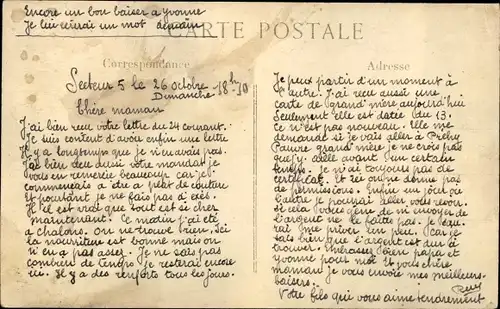 Encore un bon baiser a Yvonne
Je lui écrirai un mot demain
CARTE POSTALE
Correspondance
Adresse
Secteur 5 le 26 octobre 18h 10
Dimanche
Chère maman
J'ai bien recu votre lettre du 24 courant.
Je suis content d'avoir enfin une lettre
Il y a longtemps que je n'avais pas.
J'ai bien recu aussi votre mandat je
vous en remercie beaucoup car je
commencais a être a plat de couture
Et pourtant je ne fais pas d'exès.
Il est vrai que tout est si cher
maintenant. Ce matin j'ai été
a chalons. On ne trouve rien. Ici
la nourriture est bonne mais on
n'en a pas assez. Je ne sais pas
combien de temps je resterai encore
ici. Il y a des renforts tous les jours.
Je peux partir d'un moment à
l'autre. J'ai recu aussi une
carte de grand'mère aujourd'hui
Seulement elle est datée du 13.
Ce n'est pas nouveau. Elle me
demande si je vais aller à
Pauvre grand'mère je ne crois pas
que j'y aille avant un certain
temps. Je n'ai toujours pas de
certificat. Et on ne donne pas
de permissions. Enfin un jour où
l'autre je pourrai aller vous revoir.
Si cela vous gène de m'envoyer de
l'argent ne le faites pas. Je me
rai que priver un peu. Car je
sais bien que l'argent est dur à
trouver. Embrassez bien papa et
Yvonne pour moi. Et vous chère
maman je vous envoie mes meilleurs
baisers.
Votre fils qui vous aime tendrement